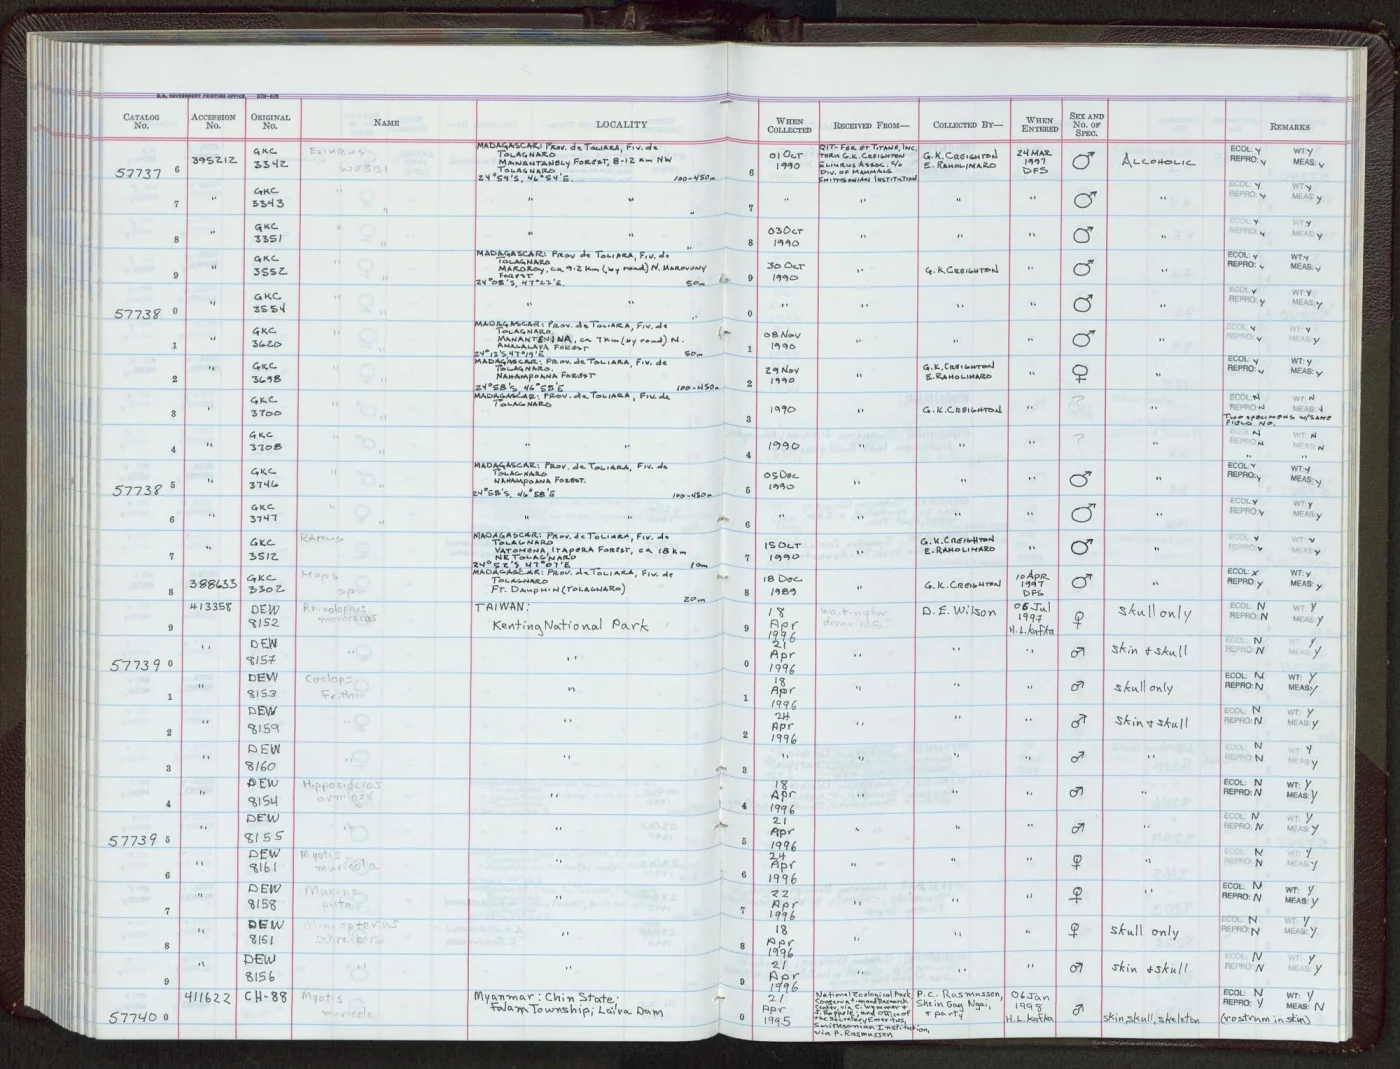 U.S. GOVERNMENT PRINTING OFFICE
CATALOG No. ACCESSION No. ORIGINAL No. NAME LOCALITY WHEN COLLECTED RECEIVED FROM— COLLECTED BY— WHEN ENTERED SEX AND NO. OF SPEC. REMARKS
577376 395212 GKC 3342 ELIURUS WEBBI MADAGASCAR: PROV. de TOLIARA, Fiv. de TOLAGNARO MANANTANELY FOREST, 8-12 Km NW TOLAGNARO 24°54'S, 46°54'E. 100-450m 6 01 OCT 1990 GIT- FOR OF TITANS, INC. THRU G.K. CREIGHTON ELIURUS ASSOC. c/o DIV. OF MAMMALS SMITHSONIAN INSTITUTION G.K. CREIGHTON E. RAHOLIMARO 24 MAR 1997 DFS ♂ ALCOHOLIC ECOL: Y WT: Y REPRO: Y MEAS: Y
7 " GKC 3343 " " " " 7 " " " " ♂ " ECOL: Y WT: Y REPRO: Y MEAS: Y
8 " GKC 3351 " " " " 8 03 OCT 1990 " " " ♂ " ECOL: Y WT: Y REPRO: Y MEAS: Y
9 " GKC 3552 " MADAGASCAR: PROV de TOLIARA, Fiv. de TOLAGNARO MAROROY, ca 9.2 Km (by road) N. MAROVONY FOREST 24°08'S, 47°22'E. 50m 9 30 OCT 1990 " G.K. CREIGHTON " ♂ " ECOL: Y WT: Y REPRO: Y MEAS: Y
57738 0 " GKC 3554 " " " 0 " " " " ♂ " ECOL: Y WT: Y REPRO: Y MEAS: Y
1 " GKC 3620 " MADAGASCAR: PROV. de TOLIARA, Fiv. de TOLAGNARO. MANANTENINA, ca 7 Km (by road) N. ANALALAVA FOREST 24°13'S, 47°19'E 50m 1 08 NOV 1990 " " " ♂ " ECOL: Y WT: Y REPRO: Y MEAS: Y
2 " GKC 3698 " MADAGASCAR: PROV. de TOLIARA, Fiv. de TOLAGNARO. NAHAMPOANA FOREST 24°58'S, 46°58'E 100-450m 2 29 NOV 1990 " G.K. CREIGHTON E. RAHOLIMARO " ♀ " ECOL: Y WT: Y REPRO: Y MEAS: Y
3 " GKC 3700 " MADAGASCAR: PROV. de TOLIARA, Fiv. de TOLAGNARO 3 1990 " G.K. CREIGHTON " ? " ECOL: N WT: N REPRO: N MEAS: N TWO SPECIMENS W/SAME FIELD NO.
4 " GKC 3708 " " " 4 1990 " " " ? " ECOL: N WT: N REPRO: N MEAS: N " "
57738 5 " GKC 3746 " MADAGASCAR: PROV. de TOLIARA, Fiv. de TOLAGNARO NAHAMPOANA FOREST. 24°58'S, 46°58'E 100-450m 5 05 DEC 1990 " " " ♂ " ECOL: Y WT: Y REPRO: Y MEAS: Y
6 " GKC 3747 " " " 6 " " " " ♂ " ECOL: Y WT: Y REPRO: Y MEAS: Y
7 " GKC 3512 RATTUS MADAGASCAR: PROV. de TOLIARA, Fiv. de TOLAGNARO VATOMENA, ITAPERA FOREST, ca 18 Km NE TOLAGNARO 24°52'S, 47°07'E 10m 7 15 OCT 1990 " G.K. CREIGHTON E. RAHOLIMARO " ♂ " ECOL: Y WT: Y REPRO: Y MEAS: Y
8 388633 GKC 3302 Mops sp MADAGASCAR: PROV. de TOLIARA, Fiv. de TOLAGNARO FT. DAUPHIN (TOLAGNARO) 20m 8 18 DEC 1989 " G.K. CREIGHTON 10 APR 1997 DFS ♂ " ECOL: X WT: Y REPRO: Y MEAS: Y
9 413358 DEW 8152 Rhinolophus monoceros TAIWAN: Kenting National Park 9 18 Apr 1996 D.E. Wilson 06 Jul 1997 H.L. Kafka ♀ skull only ECOL: N WT: Y REPRO: N MEAS: Y
57739 0 " DEW 8157 " " 0 21 Apr 1996 " " " ♂ skin & skull ECOL: N WT: Y REPRO: N MEAS: Y
1 " DEW 8153 Coelops frithii " 1 18 Apr 1996 " " " ♂ skull only ECOL: N WT: Y REPRO: N MEAS: Y
2 " DEW 8159 " " 2 24 Apr 1996 " " " ♂ skin & skull ECOL: N WT: Y REPRO: N MEAS: Y
3 " DEW 8160 " " 3 " " " " ♂ " ECOL: N WT: Y REPRO: N MEAS: Y
4 " DEW 8154 Hipposideros armiger " 4 18 Apr 1996 " " " ♂ " ECOL: N WT: Y REPRO: N MEAS: Y
57739 5 " DEW 8155 " " 5 21 Apr 1996 " " " ♂ " ECOL: N WT: Y REPRO: N MEAS: Y
6 " DEW 8161 Myotis muricola " 6 24 Apr 1996 " " " ♀ " ECOL: N WT: Y REPRO: N MEAS: Y
7 " DEW 8158 Murina puta " 7 22 Apr 1996 " " " ♀ " ECOL: N WT: Y REPRO: N MEAS: Y
8 " DEW 8151 Miniopterus schreibers " 8 18 Apr 1996 " " " ♀ skull only ECOL: N WT: Y REPRO: N MEAS: Y
9 " DEW 8156 " " 9 21 Apr 1996 " " " ♂ skin & skull ECOL: N WT: Y REPRO: N MEAS: Y
57740 0 411622 CH-88 Myotis muricola Myanmar: Chin State: Falam Township; Lailva Dam 0 21 Apr 1995 National Zoological Park, Conservation and Research Center, via C. Wemmer & J. Rappole; and Office of the Secretary Emeritus, Smithsonian Institution, via P. Rasmussen P.C. Rasmussen, Shein Gay Ngai, & party 06 Jan 1998 H.L. Kafka ♂ skin, skull, skeleton ECOL: N WT: Y REPRO: Y MEAS: N (rostrum in skin)